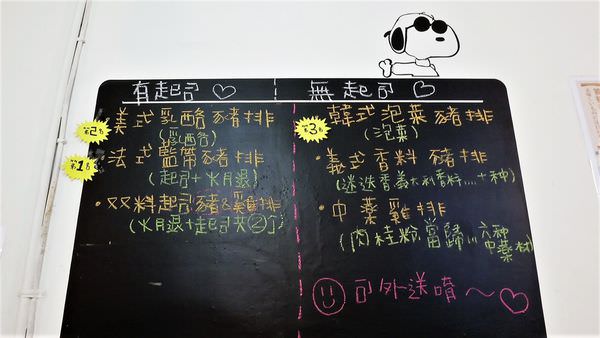 有起司♡
美式乳酪豬排
(乳酪)
法式藍帶豬排
(起司+火腿)
・双料起司豬&雞排
(火月退+起司×②)
無起司♡
韓式泡菜豬排
(泡菜)
・義式香料豬排
(迷迭香義大利香料...十种)
・中藥雞排
(肉桂粉,當歸...六种中藥材)
可外送唷~♡
第2名
第1名
第3名